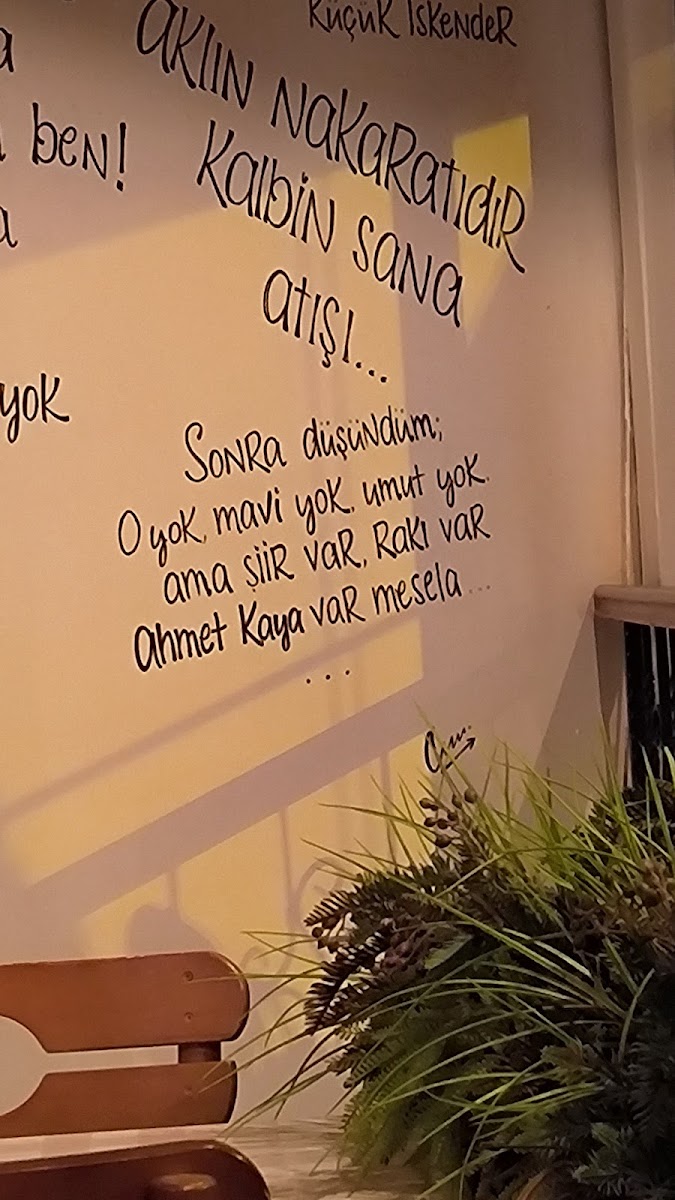 Küçük İskender
aklın nakaratıdır
ben!
kalbin sana
atışı...
yok
Sonra düşündüm;
O yok, mavi yok, umut yok.
ama şiir var, Rakı var
Ahmet Kaya var mesela...
...